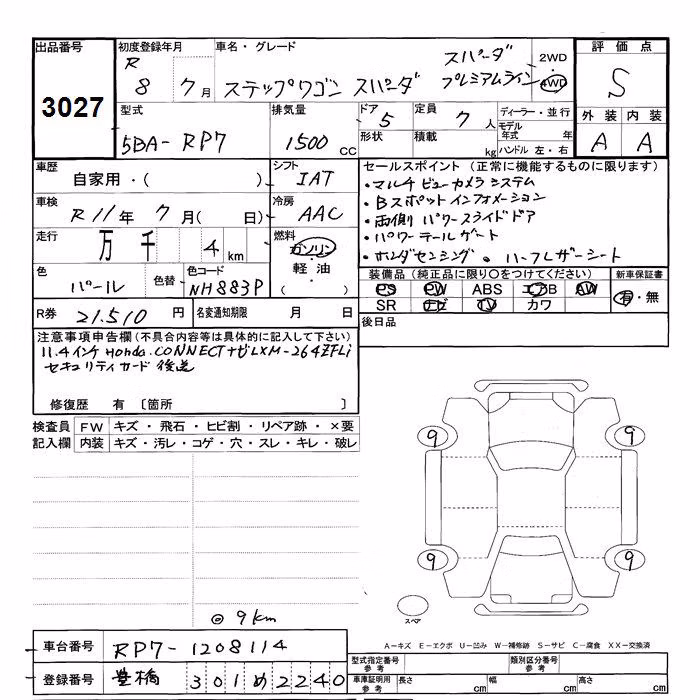 出品番号 初度登録年月 車名・グレード 評価点
3027 R 8 7月 ステップワゴン スパーダ スパーダ プレミアムライン 2WD 4WD S
型式 排気量 ドア 定員 ディーラー・並行 外装 内装
5BA-RP7 1500 CC 5 7人 モデル年式 年 A A
形状 積載 kg ハンドル 左・右
車歴 自家用・( ) シフト IAT
セールスポイント (正常に機能するものに限ります)
・マルチビューカメラシステム
・Bスポットインフォメーション
・両側パワースライドドア
・パワーテールゲート
・ホンダセンシング ・ハーフレザーシート
車検 R11年 7月( 日) 冷房 AAC
走行 万 千 4 km 燃料 ガソリン 軽油・( )
色 パール 色替 色コード NH883P
装備品 (純正品に限り○をつけてください) 新車保証書
PS PW ABS エアB AW 有・無
SR ナビ TV カワ
R券 21,510 円 名変通知期限 月 日
後日品
注意事項申告欄(不具合内容等は具体的に記入して下さい)
11.4インチ Honda CONNECTナビLXM-264ZFLi
セキュリティカード 後送
修復歴 有 [箇所 ]
検査員 FW キズ・飛石・ヒビ割・リペア跡・×要
記入欄 内装 キズ・汚レ・コゲ・穴・スレ・キレ・破レ
9 9
9 9
スペア
◎9km
A-キズ E-エクボ U-凹み W-補修跡 S-サビ C-腐食 XX-交換済
車台番号 RP7-1208114
型式指定番号 参考 類別区分番号 参考
登録番号 豊橋 301 め 2240
車庫証明用 参考 長さ cm 幅 cm 高さ cm